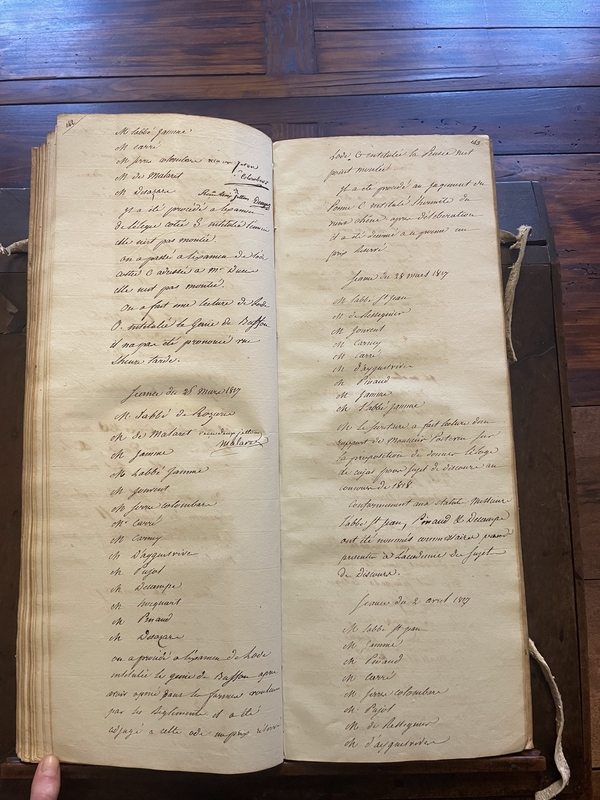 162
M labbé Jamme
M carré
M jirne colombare
M de Malaret
M Decazare
Il a été procédé a lexamen
de l'éloge cotté
elle n'est pas montée.
on a passé a lexamen de lode
cottée C adressée a Mr.
elle n'est pas montée.
On a fait une lecture de lode
O. intitulée le Génie de Buffon
il na pas été prononcé vu
lheure tarde.
Séance du 26 Mars 1817
M. Labbé de Rozieres
M de Malaret vu deux jettons Malaret
M Jamme
M. Labbé Jamme
M Jouvent
M jirne colombare
Mr Carré
M Carney
M Dayguesvives
M Pujol
M Decampe
M hocquart
M Pinaud
M Decazare
on a procédé a lexamen de Lode
intitulée le génie de Buffon apres
avoir opiné dans les formes voulues
par les Réglements il a été
adjugé a cette ode un prix réservé
163
lode C intitulée la n'est
point montée
Il a été procédé au jugement du
Poeme C intitulé lhermite du
apres déliberation
il a été décerné a ce poeme un
prix réservé
Séance du 28 mars 1817
M labbé St Jean
M de Resseguier
M Jouvent
M Carney
M Carré
M d'ayguesvives
M Pinaud
M Jamme
M L'abbé Jamme
M le secrétaire a fait lecture d'un
rapport de Monsieur Poitevin sur
la proposition de donner l'éloge
de cujas pour sujet de discours au
concours de 1818
Conformément aux statuts Messieurs
l'abbé St Jean, Pinaud & Decampe
ont été nommés commissaires pour
présenter a L'académie le sujet
de discours.
Séance du 2 avril 1817
M labbé St jean
M Jamme
M Pinaud
M Carré
M jirne colombare
M Pujol
M de Resseguier
M d'ayguesvives